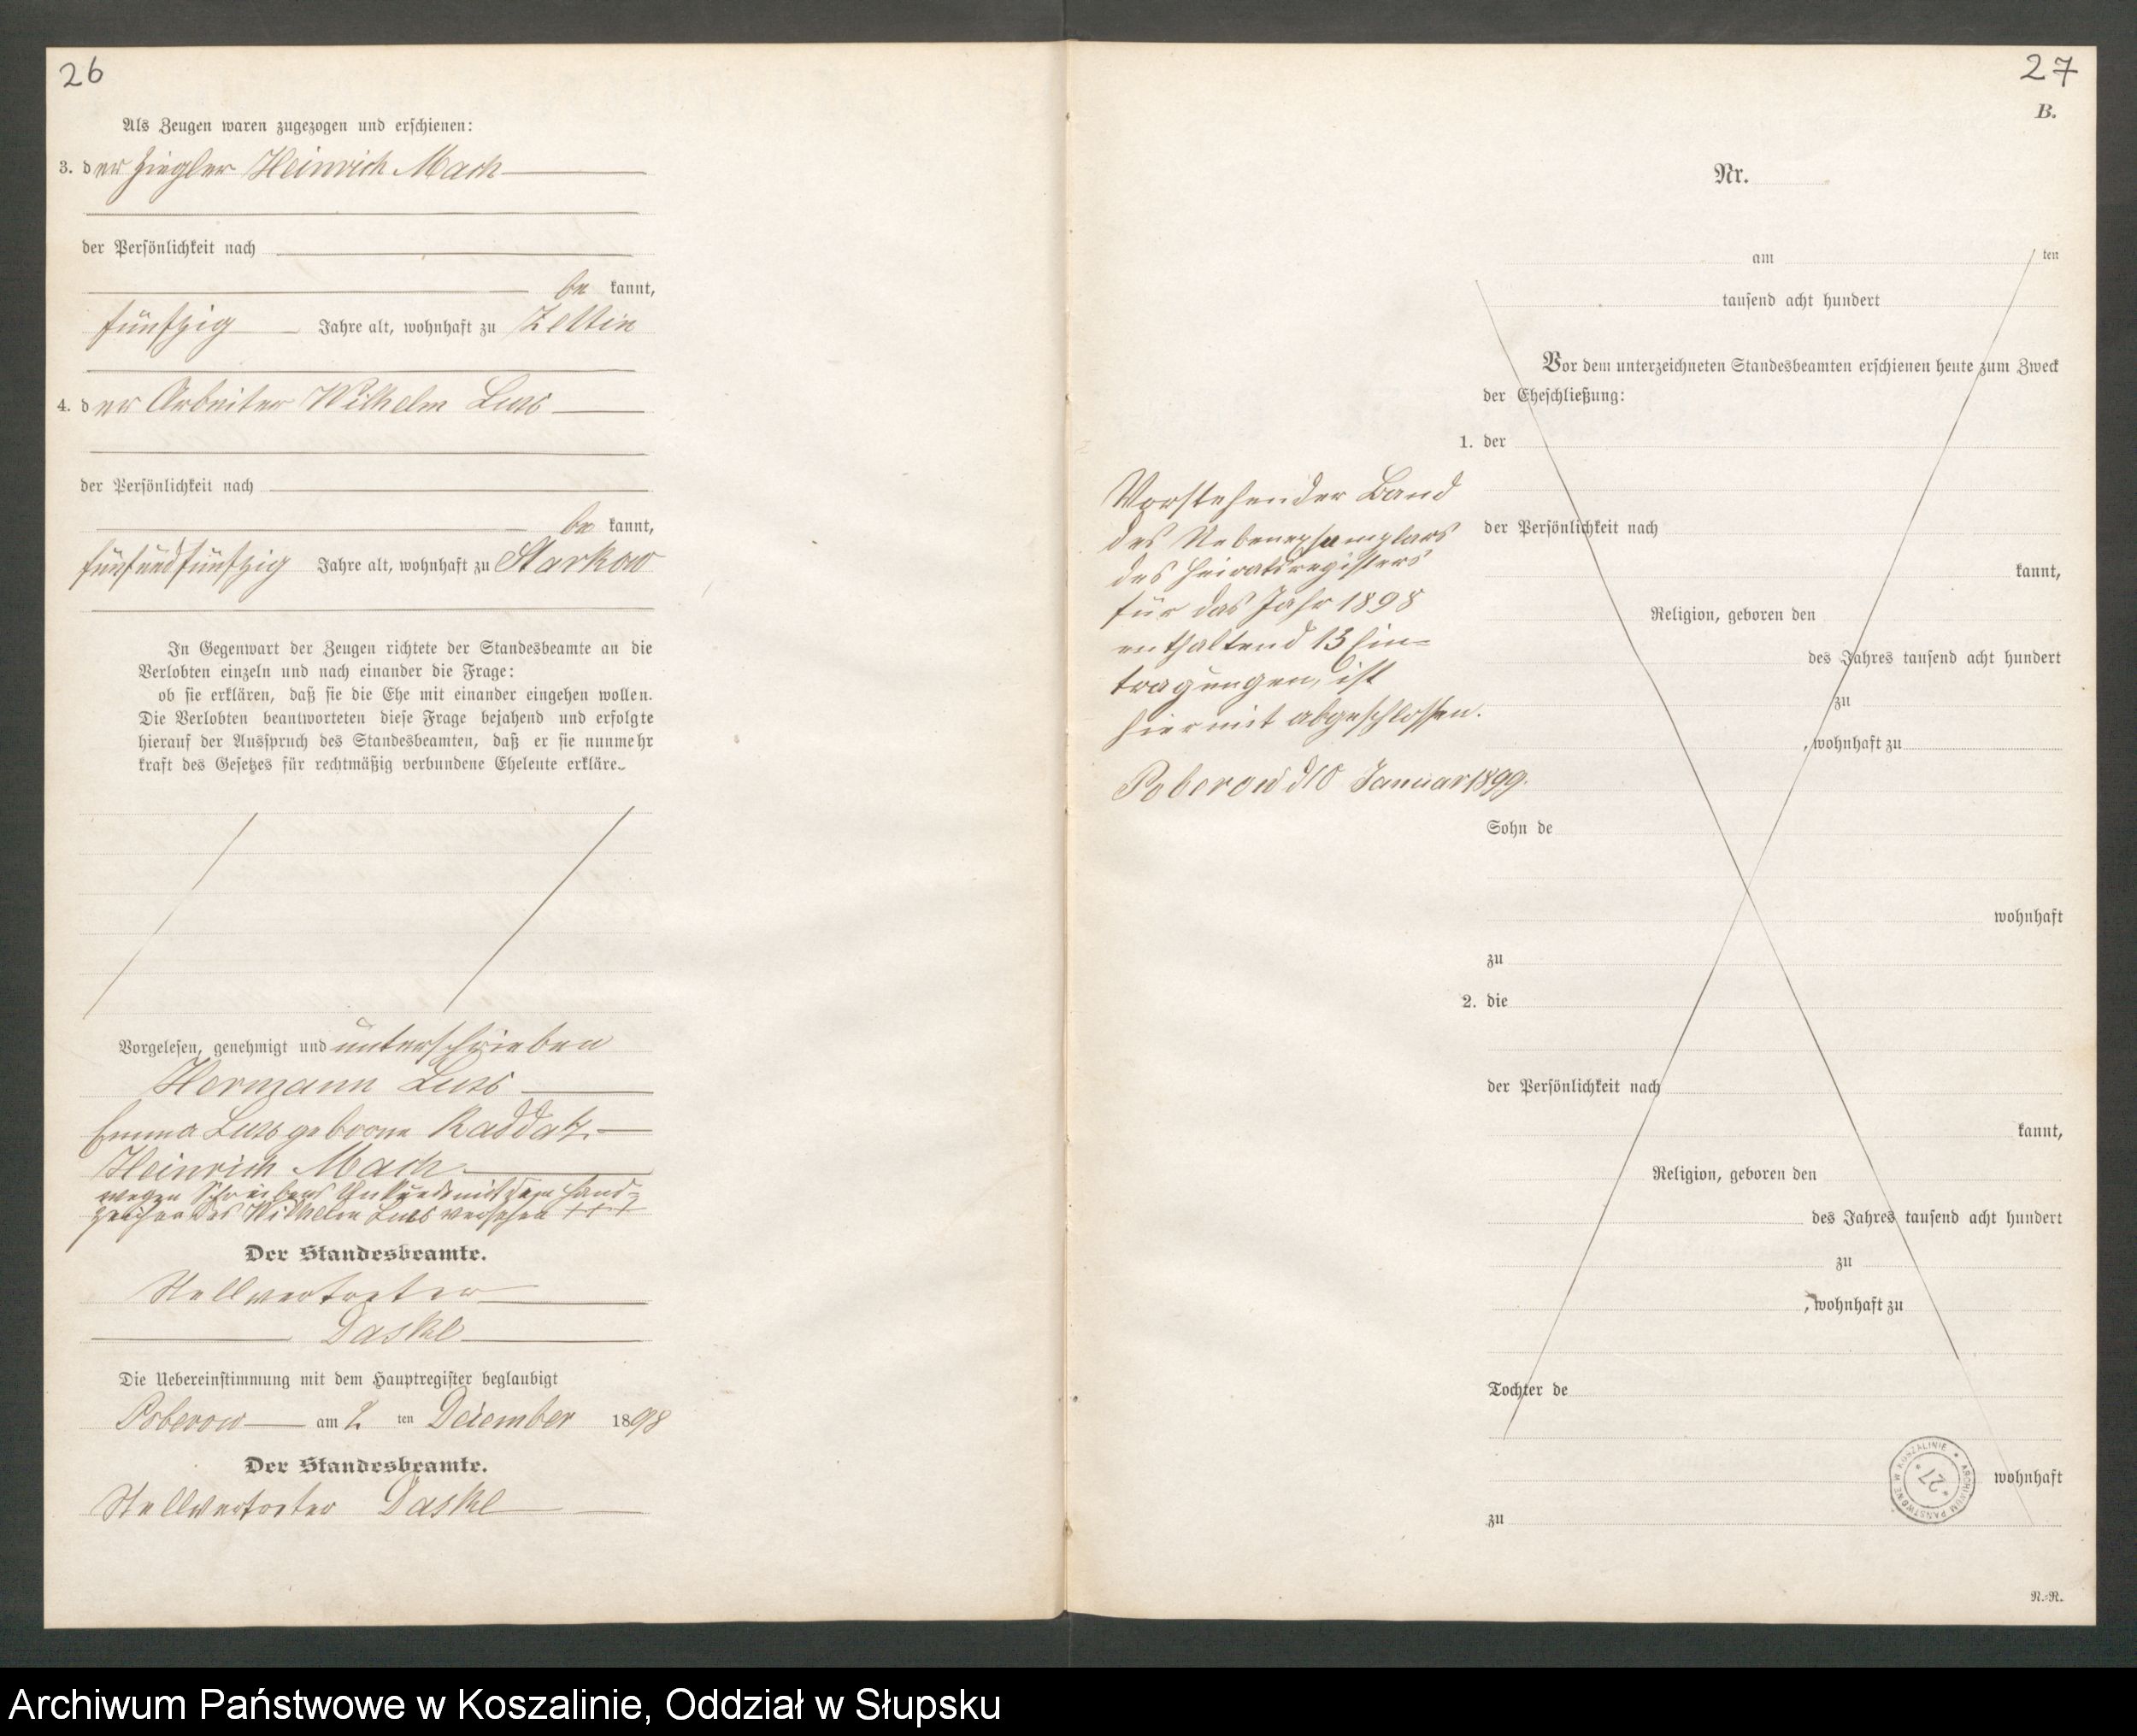 26
Als Zeugen waren zugezogen und erschienen:
3. der Ziegler Heinrich Mach
der Persönlichkeit nach
be kannt,
fünfzig Jahre alt, wohnhaft zu Zettin
4. der Arbeiter Wilhelm Luis
der Persönlichkeit nach
be kannt,
fünfundfünfzig Jahre alt, wohnhaft zu Starkow
In Gegenwart der Zeugen richtete der Standesbeamte an die
Verlobten einzeln und nach einander die Frage:
ob sie erklären, daß sie die Ehe mit einander eingehen wollen.
Die Verlobten beantworteten diese Frage bejahend und erfolgte
hierauf der Ausspruch des Standesbeamten, daß er sie nunmehr
kraft des Gesetzes für rechtmäßig verbundene Eheleute erkläre.
Vorgelesen, genehmigt und unterschrieben
Hermann
Emma geborne Raddatz
Heinrich Mach
wegen Schreibens Unkunde mit dem Hand-
zeichen des Wilhelm versehen +++
Der Standesbeamte.
Stellvertreter
Daske
Die Uebereinstimmung mit dem Hauptregister beglaubigt
Poberow am 2 ten December 1898
Der Standesbeamte.
Stellvertreter Daske
27
B.
Nr.
am ten
tausend acht hundert
Vor dem unterzeichneten Standesbeamten erschienen heute zum Zweck
der Eheschließung:
1. der
der Persönlichkeit nach
kannt,
Religion, geboren den
des Jahres tausend acht hundert
zu
, wohnhaft zu
Sohn de
wohnhaft
zu
2. die
der Persönlichkeit nach
kannt,
Religion, geboren den
des Jahres tausend acht hundert
zu
, wohnhaft zu
Tochter de
wohnhaft
zu
Vorstehender Band
des Nebenexemplars
des Heiratsregisters
für das Jahr 1898
enthaltend 13 Ein-
tragungen, ist
hiermit abgeschlossen.
Poberow d 10 Januar 1899.
ARCHIWUM PAŃSTWOWE W KOSZALINIE
27
R.-R.
Archiwum Państwowe w Koszalinie, Oddział w Słupsku